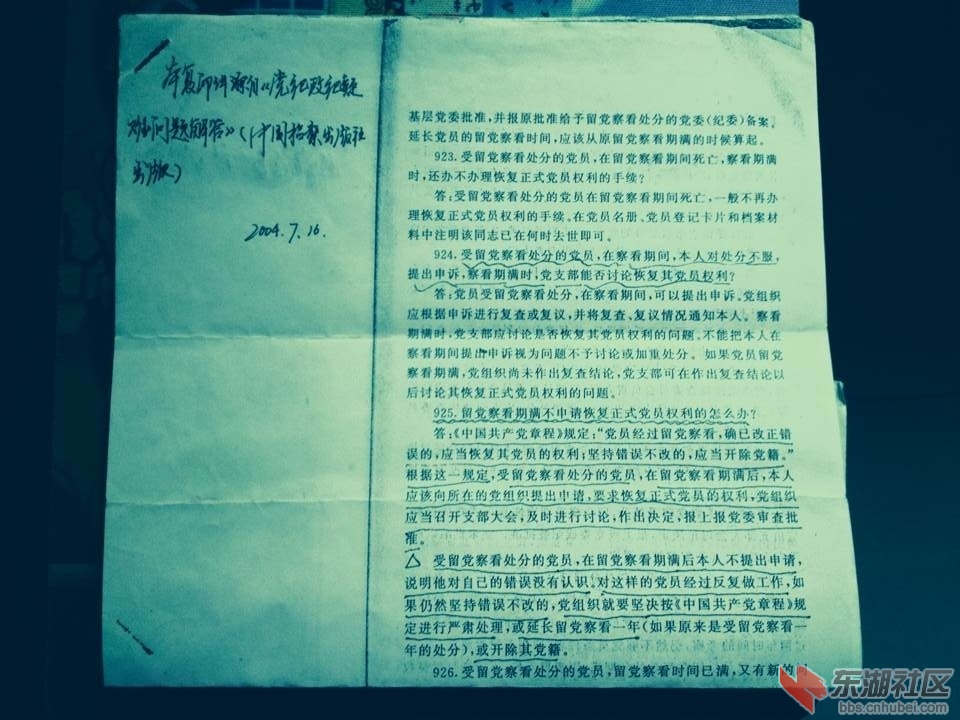 本复印件源自《党纪政纪疑
难问题解答》(中国档案出版社
出版)
2004.7.16.
基层党委批准,并报原批准给予留党察看处分的党委(纪委)备案。
延长党员的留党察看时间,应该从原留党察看期满的时候算起。
923.受留党察看处分的党员,在留党察看期间死亡,察看期满
时,还办不办理恢复正式党员权利的手续?
答:受留党察看处分的党员在留党察看期间死亡,一般不再办
理恢复正式党员权利的手续。在党员名册、党员登记卡片和档案材
料中注明该同志已在何时去世即可。
924.受留党察看处分的党员,在察看期间,本人对处分不服,
提出申诉,察看期满时,党支部能否讨论恢复其党员权利?
答:党员受留党察看处分,在察看期间,可以提出申诉。党组织
应根据申诉进行复查或复议,并将复查、复议情况通知本人。察看
期满时,党支部应讨论是否恢复其党员权利的问题。不能把本人在
察看期间提出申诉视为问题不予讨论或加重处分。如果党员留党
察看期满,党组织尚未作出复查结论,党支部可在作出复查结论以
后讨论其恢复正式党员权利的问题。
925.留党察看期满不申请恢复正式党员权利的怎么办?
答:《中国共产党章程》规定:“党员经过留党察看,确已改正错
误的,应当恢复其党员的权利;坚持错误不改的,应当开除党籍。”
根据这一规定,受留党察看处分的党员,在留党察看期满后,本人
应该向所在的党组织提出申请,要求恢复正式党员的权利,党组织
应当召开支部大会,及时进行讨论,作出决定,报上报党委审查批
准。
△ 受留党察看处分的党员,在留党察看期满后本人不提出申请,
说明他对自己的错误没有认识,对这样的党员经过反复做工作,如
果仍然坚持错误不改的,党组织就要坚决按《中国共产党章程》规
定进行严肃处理,或延长留党察看一年(如果原来是受留党察看一
年的处分),或开除其党籍。
926.受留党察看处分的党员,留党察看时间已满,又有新的
东湖社区
bbs.cnhubei.com